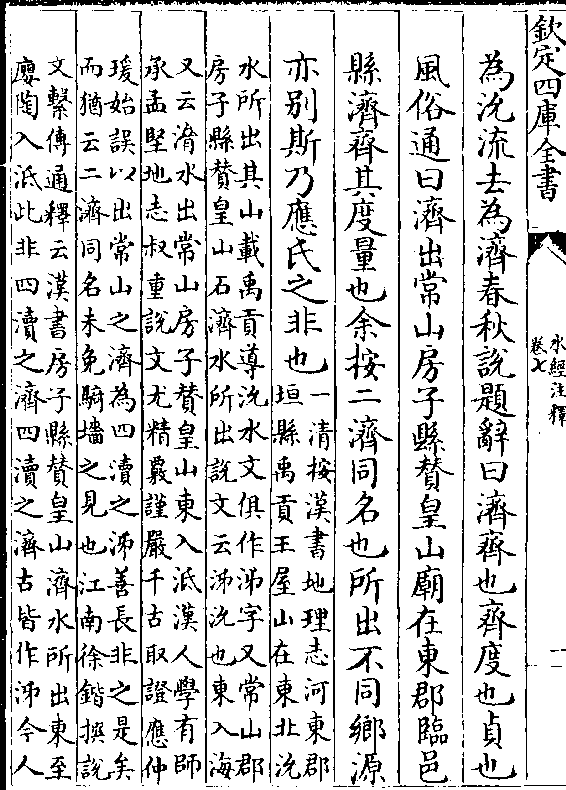 欽定四庫全書
水經注釋
卷七
為沇流去為濟春秋說題辭曰濟齊也齊度也貞也
風俗通曰濟出常山房子縣贊皇山廟在東郡臨邑
縣濟齊其度量也余按二濟同名也所出不同鄉源
亦别斯乃應氏之非也
一清按漢書地理志河東郡
垣縣禹貢王屋山在東北沇
水所出其山載禹貢導沇水文俱作泲字又常山郡
房子縣贊皇山石濟水所出說文云泲沇也東入海
又云濟水出常山房子贊皇山東入泜漢人學有師
承孟堅地志叔重說文尤精覈謹嚴千古取證應仲
瑗始誤以出常山之濟為四瀆之泲善長非之是矣
而猶云二濟同名未免騎墻之見也江南徐鍇撰說
文繫傳通釋云漢書房子縣贊皇山濟水所出東至
廮陶入泜此非四瀆之濟四瀆之濟古皆作泲今人